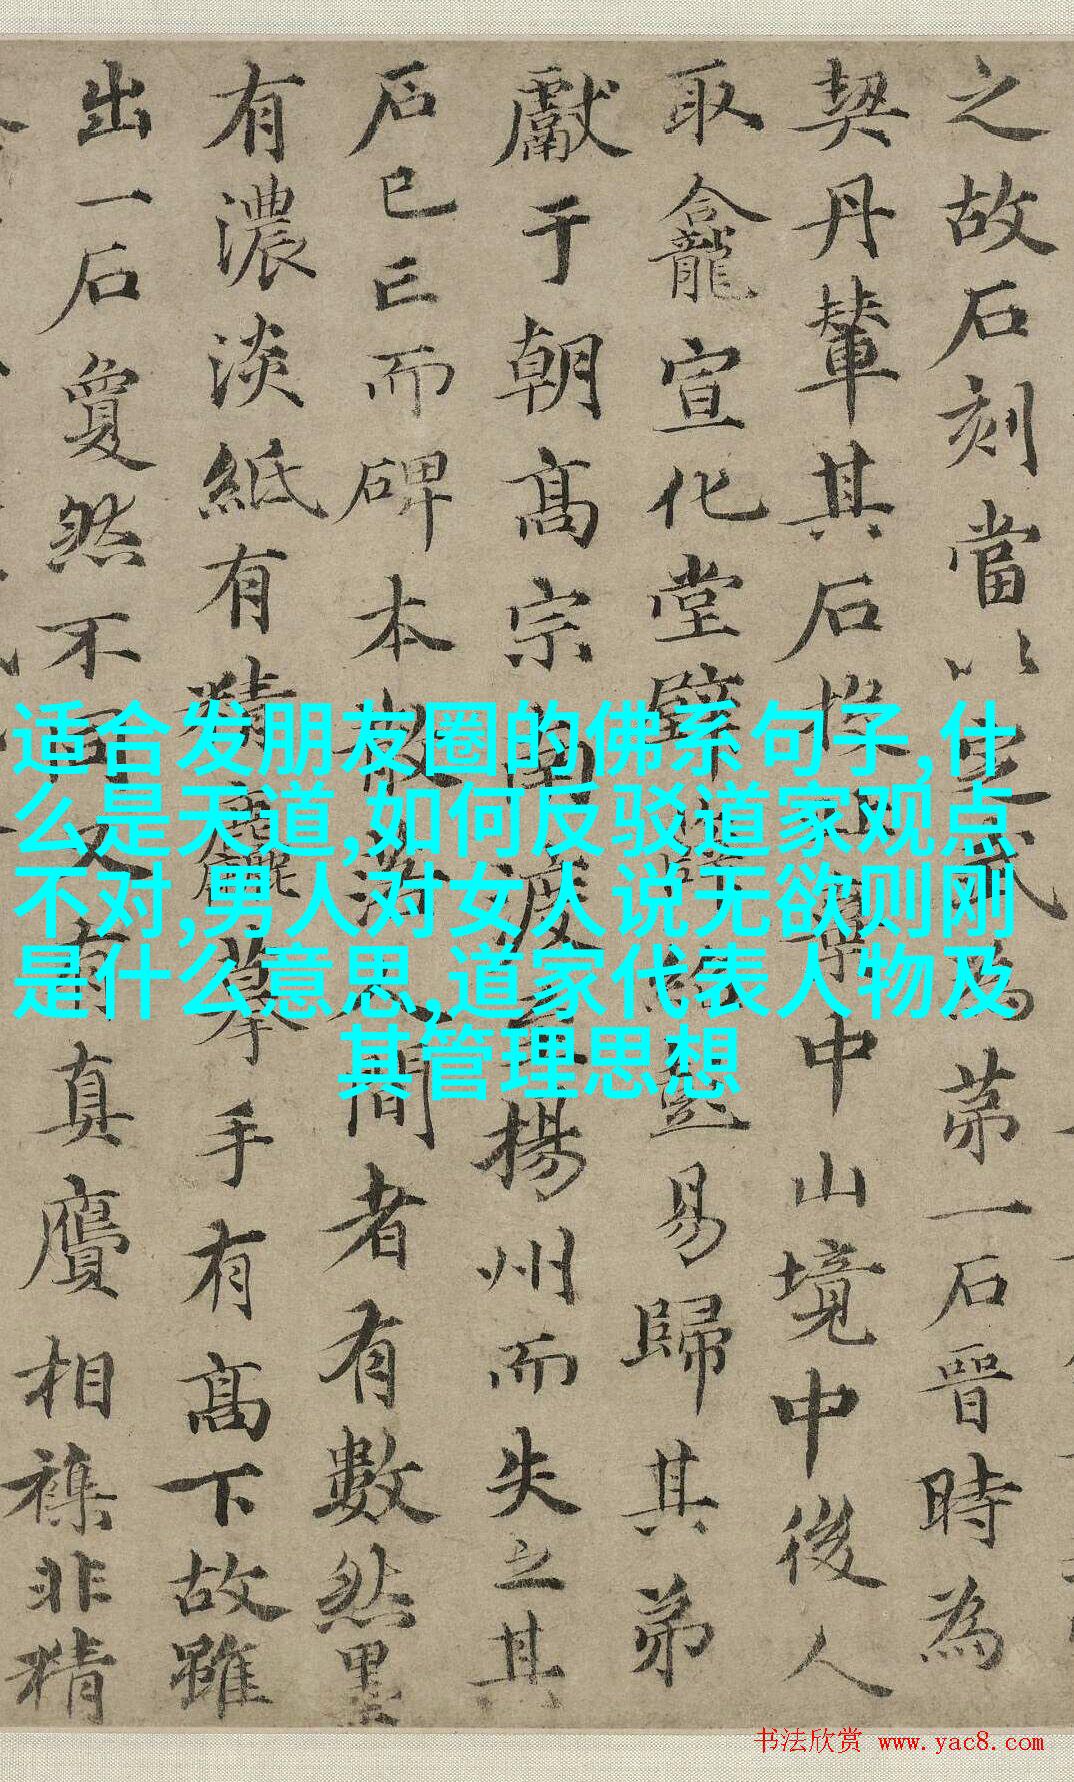 之故石刻當以武為苐一石晉時為
契丹輦其石中山境中後人
取龕宣化堂壁易歸其弟
獻于朝高宗渡揚州而失之其
石已亡而碑本散落人間者有數然墨
有濃淡紙有精麤摹手有高下故雖
出一石敻然不同又有真贗相襍非精
适合发朋友圈的佛系句子,什
么是天道,如何反驳道家观点
不对,男人对女人说无欲则刚
是什么意思,道家代表人物及
其管理思想
书法欣赏 www.yac8.com